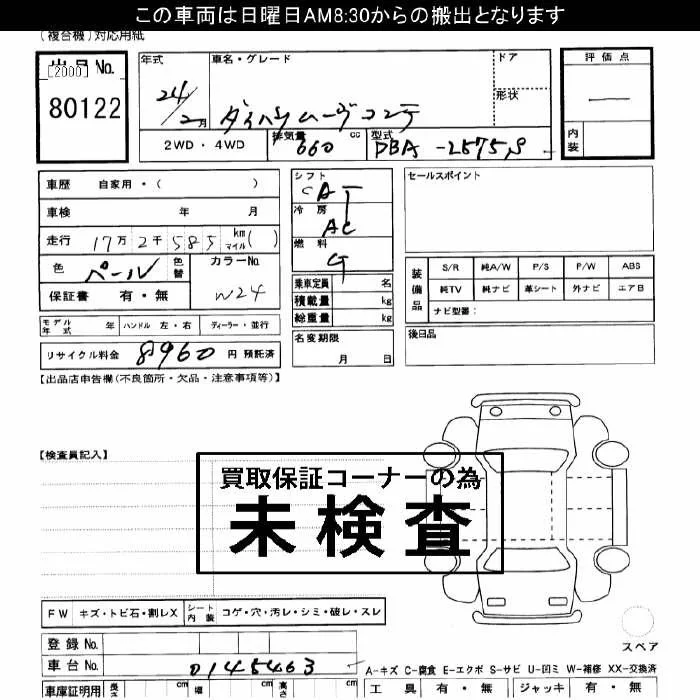 この車両は日曜日AM8:30からの搬出となります
(複合機)対応用紙
[2000]
出品No. 80122
年式 24/2月
車名・グレード ダイハツムーヴコンテ
ドア
形状
2WD・4WD
排気量 660 cc
型式 DBA-L575S
評価点
内装
車歴 自家用・( )
車検 年 月
走行 17万2千585 km マイル( )
色 パール 色替
カラーNo. W24
保証書 有・無
モデル年式 年 ハンドル 左・右 ディーラー・並行
リサイクル料金 8960 円 預託済
シフト CAT
冷房 AC
燃料 G
乗車定員 名
積載量 kg
総重量 kg
名変期限
月 日
セールスポイント
装備品 S/R 純A/W P/S P/W ABS
純TV 純ナビ 革シート 外ナビ エアB
ナビ型番:
後日品
【出品店申告欄(不良箇所・欠品・注意事項等)】
【検査員記入】
買取保証コーナーの為
未検査
FW キズ・トビ石・割レX シート内装 コゲ・穴・汚レ・シミ・破レ・スレ
スペア
登録No.
車台No. 0145463
A-キズ C-腐食 E-エクボ S-サビ U-凹ミ W-補修 XX-交換済
車庫証明用 長さ cm 幅 cm 高さ cm
工具 有・無 ジャッキ 有・無